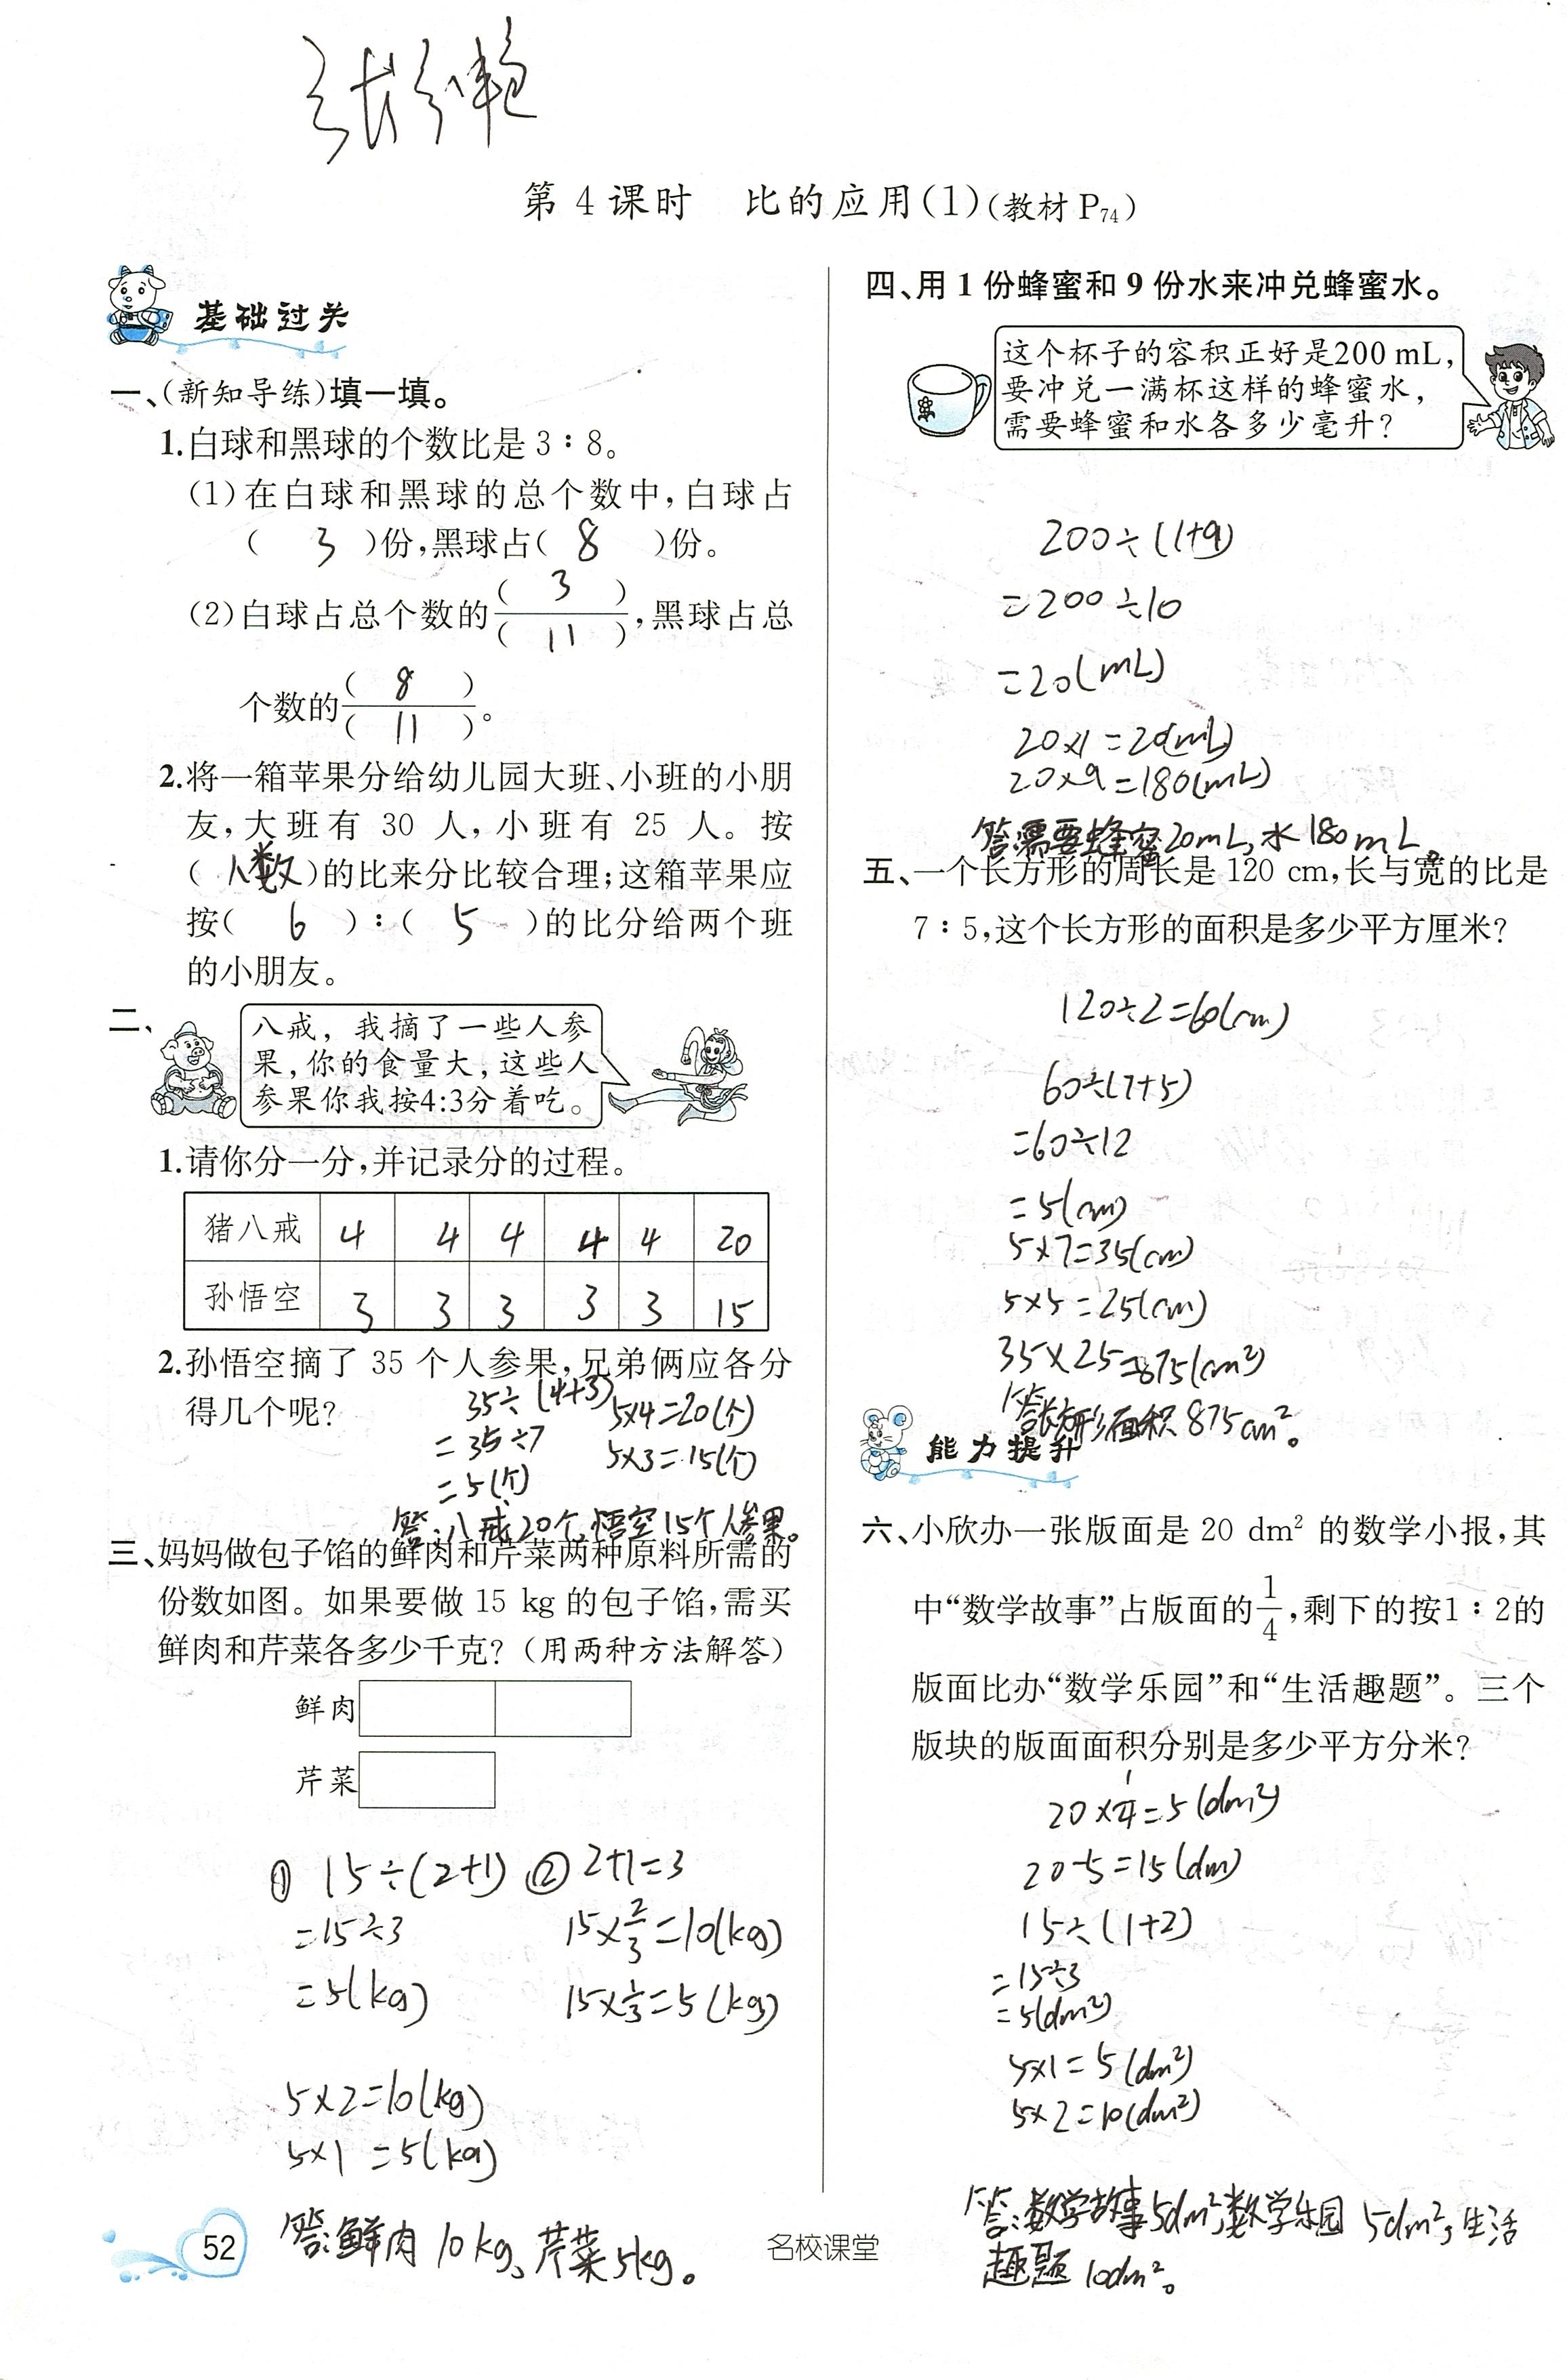 第 4 课时 比的应用(1)(教材 P₇₄)
基础过关
一、(新知导练)填一填。
1.白球和黑球的个数比是 3∶8。
(1)在白球和黑球的总个数中,白球占
( 3 )份,黑球占( 8 )份。
(2)白球占总个数的( 3 )/( 11 ),黑球占总
个数的( 8 )/( 11 )。
2.将一箱苹果分给幼儿园大班、小班的小朋
友,大班有 30 人,小班有 25 人。按
( 人数 )的比来分比较合理;这箱苹果应
按( 6 )∶( 5 )的比分给两个班
的小朋友。
二、
八戒，我摘了一些人参
果,你的食量大,这些人
参果你我按4:3分着吃。
1.请你分一分,并记录分的过程。
猪八戒 4 4 4 4 4 20
孙悟空 3 3 3 3 3 15
2.孙悟空摘了 35 个人参果,兄弟俩应各分
得几个呢?
35÷(4+3)
=35÷7
=5(个)
5×4=20(个)
5×3=15(个)
答:八戒20个,悟空15个人参果。
三、妈妈做包子馅的鲜肉和芹菜两种原料所需的
份数如图。如果要做 15 kg 的包子馅,需买
鲜肉和芹菜各多少千克?(用两种方法解答)
鲜肉
芹菜
① 15÷(2+1)
=15÷3
=5(kg)
5×2=10(kg)
5×1=5(kg)
② 2+1=3
15×2/3=10(kg)
15×1/3=5(kg)
答:鲜肉10kg、芹菜5kg。
四、用 1 份蜂蜜和 9 份水来冲兑蜂蜜水。
这个杯子的容积正好是200 mL,
要冲兑一满杯这样的蜂蜜水,
需要蜂蜜和水各多少毫升?
200÷(1+9)
=200÷10
=20(mL)
20×1=20(mL)
20×9=180(mL)
答:需要蜂蜜20mL,水180mL。
五、一个长方形的周长是 120 cm,长与宽的比是
7∶5,这个长方形的面积是多少平方厘米?
120÷2=60(cm)
60÷(7+5)
=60÷12
=5(cm)
5×7=35(cm)
5×5=25(cm)
35×25=875(cm²)
答:长方形面积875cm²。
能力提升
六、小欣办一张版面是 20 dm² 的数学小报,其
中“数学故事”占版面的1/4,剩下的按1∶2的
版面比办“数学乐园”和“生活趣题”。三个
版块的版面面积分别是多少平方分米?
20×1/4=5(dm²)
20-5=15(dm)
15÷(1+2)
=15÷3
=5(dm²)
5×1=5(dm²)
5×2=10(dm²)
答:数学故事5dm²,数学乐园5dm²,生活
趣题10dm²。
52
名校课堂